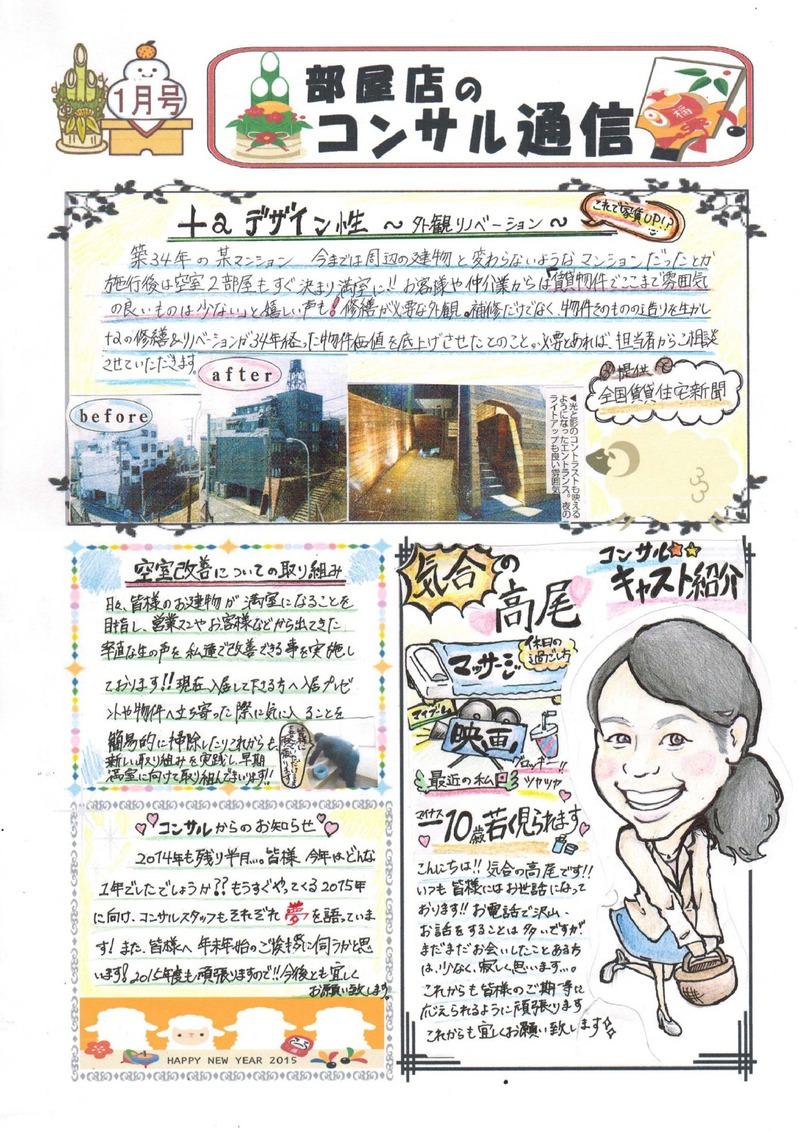 1月号
部屋店の
コンサル通信
+αデザイン性 ～外観リノベーション～
これで家賃UP!?
築34年の某マンション 今までは周辺の建物と変わらないようなマンションだったとか
施行後は空室2部屋もすぐ決まり満室に!! お客様や仲介業からは「賃貸物件でここまで雰囲気
の良いものは少ない」と嬉しい声も! 修繕が必要な外観。補修だけでなく、物件そのものの造りを生かし
+αの修繕&リノベーションが34年経った物件価値を底上げさせたとのこと。必要とあれば、担当者からご相談
させていただきます。
before
after
◀光と影のコントラストも映える
ようになったエントランス。夜の
ライトアップも良い雰囲気
提供
全国賃貸住宅新聞
空室改善についての取り組み
日々、皆様のお建物が満室になることを
目指し、営業マンやお客様などから出てきた
率直な生の声を私達で改善できる事を実施し
ております!! 現在入居して下さる方へ入居プレゼ
ントや物件へ立ち寄った際に気に入ることを
簡易的に掃除したりこれからも、
新しい取り組みを実践し、早期
満室に向けて取り組んでまいります!!
コンサルからのお知らせ
2014年も残り半月…。皆様、今年はどんな
1年でしたでしょうか?? もうすぐやってくる2015年
に向け、コンサルスタッフもそれぞれ夢を語っていま
す! また、皆様へ年末年始のご挨拶に伺うかと思
います! 2015年度も頑張りますので!! 今後とも宜しく
お願い致します。
HAPPY NEW YEAR 2015
コンサル
キャスト紹介
気合の
高尾
マッサージ
休日の
過ごし方
マイブーム
映画
最近の私
ツヤツヤ
マイナス
－10歳若く見られます
こんにちは!! 気合の高尾です!!
いつも皆様にはお世話になって
おります!! お電話で沢山、
お話をすることは多いですが
まだまだお会いしたことある方
は、少なく、寂しく思います…。
これからも皆様のご期待に
応えられるように頑張ります
これからも宜しくお願い致します☆